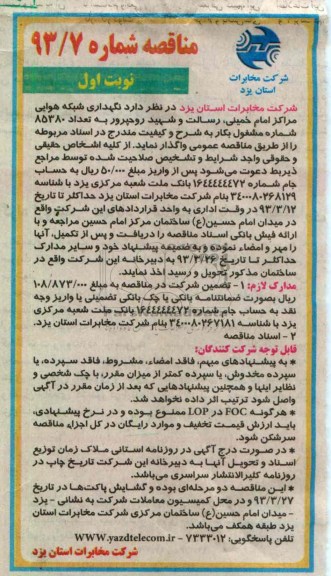 مناقصه شماره ۹۳/۷
شرکت مخابرات
استان یزد
نوبت اول
شرکت مخابرات استان یزد در نظر دارد نگهداری شبکه هوایی
مراکز امام خمینی، رسالت و شهید روحپرور به تعداد ۸۵۳۸۰
شماره مشغول بکار به شرح و کیفیت مندرج در اسناد مربوطه
را از طریق مناقصه عمومی واگذار نماید. از کلیه اشخاص حقیقی
و حقوقی واجد شرایط و تشخیص صلاحیت شده توسط مراجع
ذیربط دعوت می‌شود پس از واریز مبلغ ۵۰/۰۰۰ ریال به حساب
جام شماره ۱۶۴۴۴۴۴۴۷۲ بانک ملت شعبه مرکزی یزد با شناسه
۳۴۰۰۰۸۰۳۶۸۱۲۹ بنام شرکت مخابرات استان یزد حداکثر تا تاریخ
۹۳/۳/۱۲ در وقت اداری به واحد قراردادهای این شرکت واقع
در میدان امام حسین(ع) ساختمان مرکز امام حسین مراجعه و با
ارائه فیش بانکی اسناد مناقصه را دریافت و پس از تکمیل، آنها
را مهر و امضاء نموده و به ضمیمه پیشنهاد خود و سایر مدارک
حداکثر تا تاریخ ۹۳/۳/۲۶ به دبیرخانه این شرکت واقع در
ساختمان مذکور تحویل و رسید اخذ نمایند.
مدارک لازم: ۱- تضمین شرکت در مناقصه به مبلغ ۱۰۸/۸۷۳/۰۰۰
ریال بصورت ضمانتنامه بانکی یا چک بانکی تضمینی یا واریز وجه
نقد به حساب جام شماره ۱۶۴۴۴۴۴۴۷۲ بانک ملت شعبه مرکزی
یزد با شناسه ۳۴۰۰۰۸۰۲۶۷۱۸۱ بنام شرکت مخابرات استان یزد.
۲- اسناد مناقصه
قابل توجه شرکت کنندگان:
* به پیشنهادهای مبهم، فاقد امضاء، مشروط، فاقد سپرده، یا
سپرده مخدوش، یا سپرده کمتر از میزان مقرر، با چک شخصی و
نظایر اینها و همچنین پیشنهادهایی که بعد از زمان مقرر در آگهی
واصل شود ترتیب اثر داده نخواهد شد.
* هرگونه FOC در LOP ممنوع بوده و در نرخ پیشنهادی،
باید ارزش قیمت تخفیف و موارد رایگان در کل اجزاء مناقصه
سرشکن شود.
* در صورت درج آگهی در روزنامه استانی ملاک زمان توزیع
اسناد و تحویل آنها به دبیرخانه این شرکت تاریخ چاپ در
روزنامه کثیرالانتشار سراسری می‌باشد.
* این مناقصه دو مرحله‌ای بوده و گشایش پاکت‌ها در تاریخ
۹۳/۳/۲۷ و در محل کمیسیون معاملات شرکت به نشانی - یزد
- میدان امام حسین(ع) ساختمان مرکزی شرکت مخابرات استان
یزد طبقه همکف می‌باشد.
تلفن پاسخگویی: ۷۲۳۳۰۱۲ - WWW.yazdtelecom.ir
شرکت مخابرات استان یزد